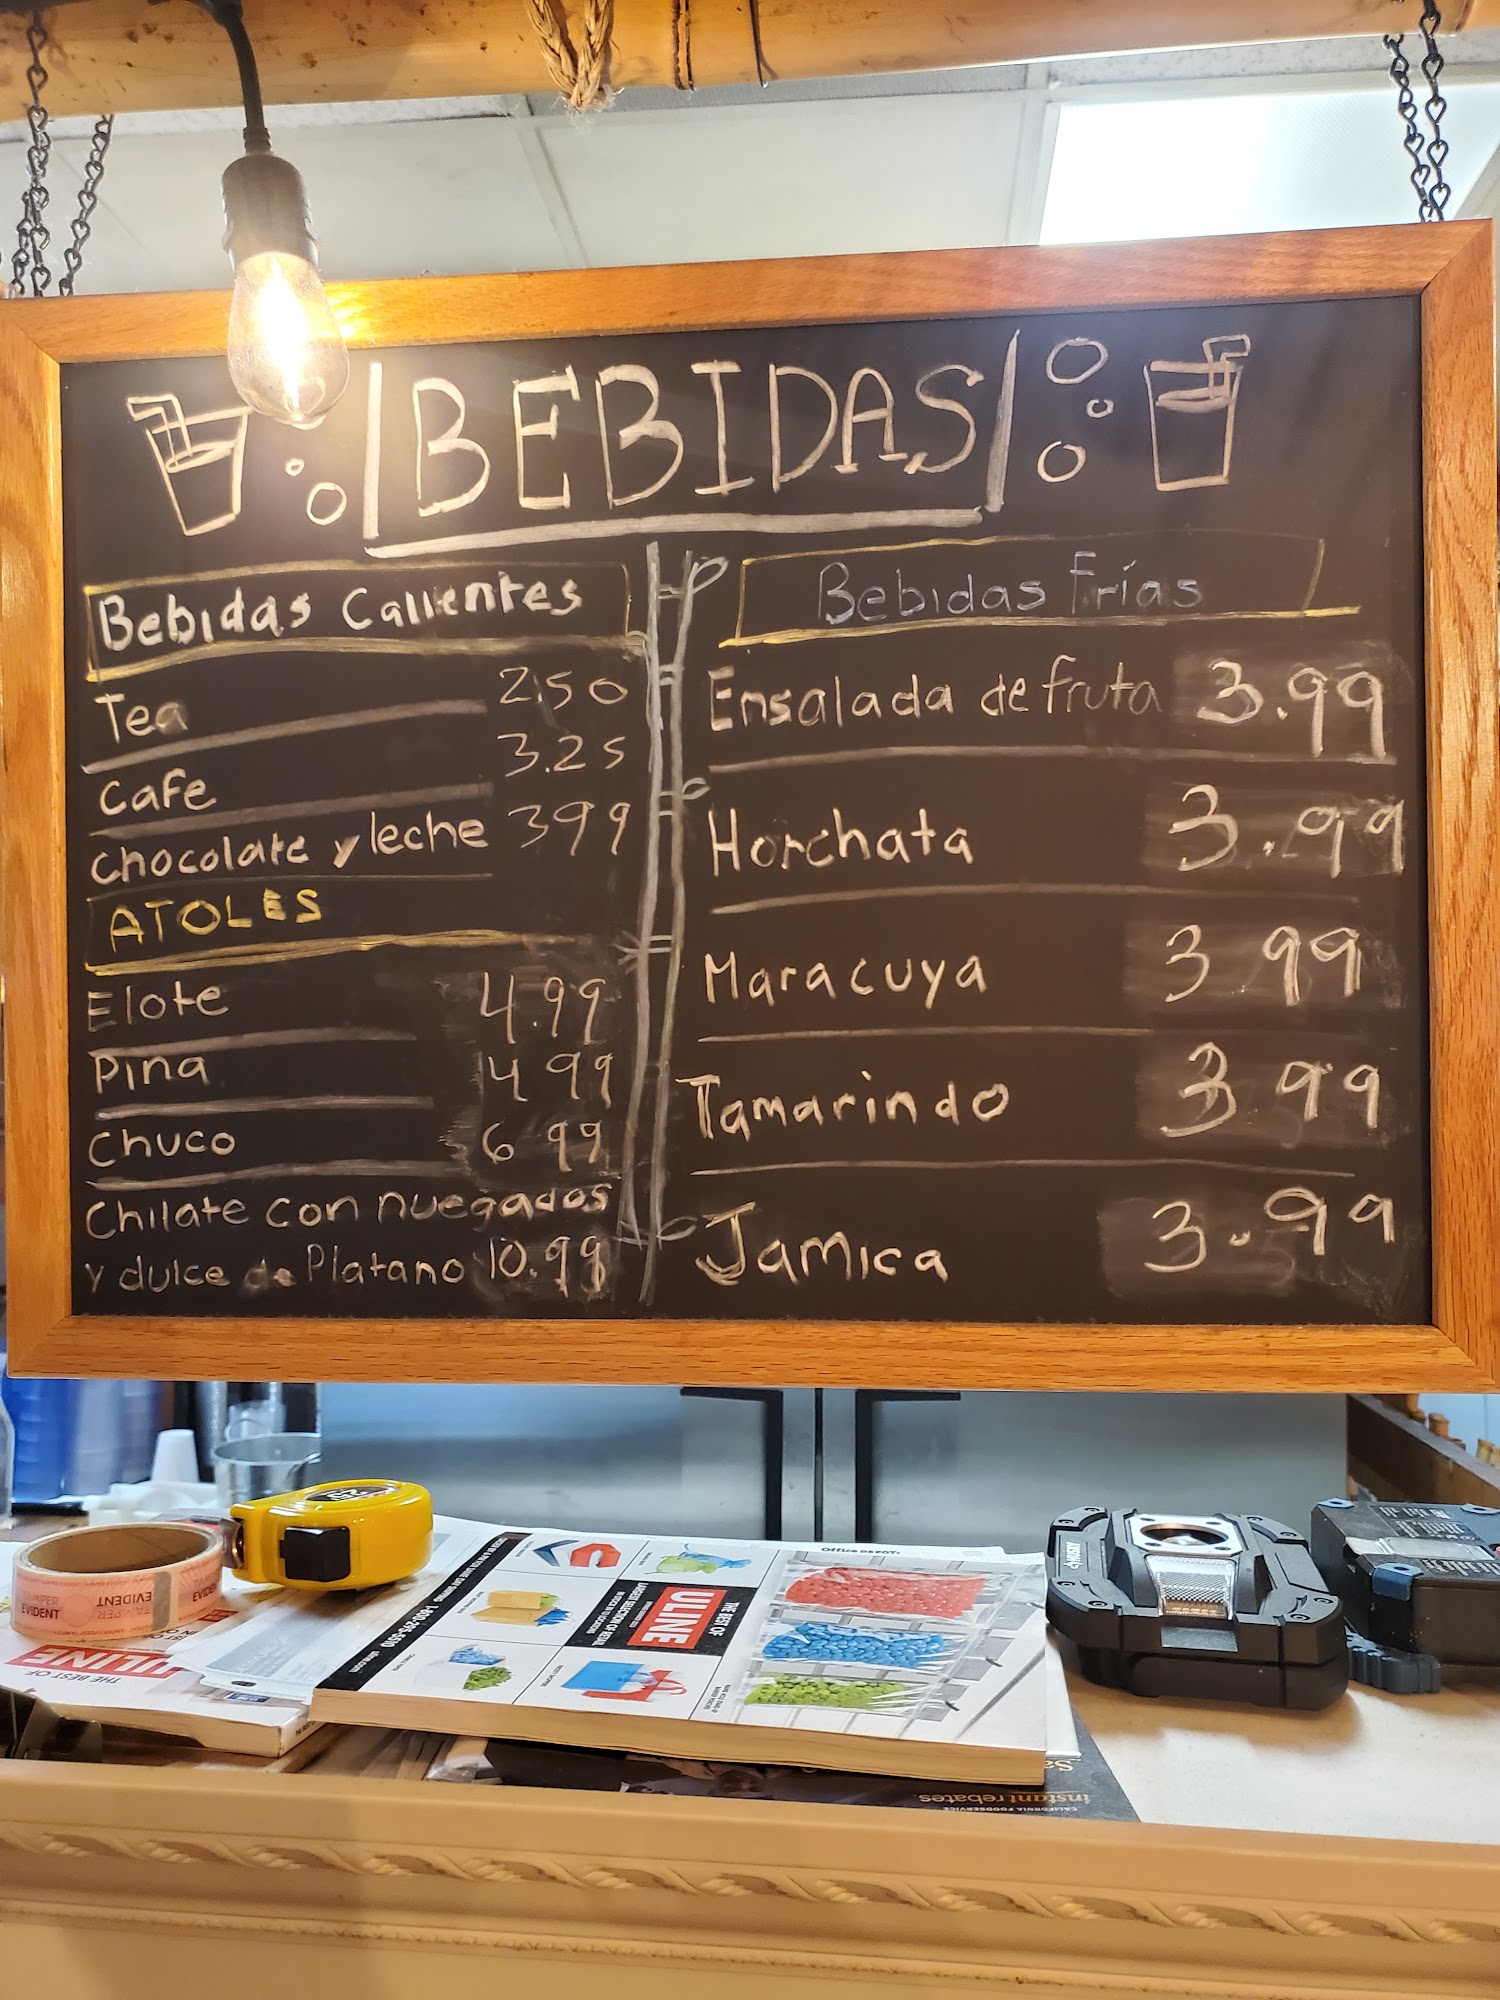 BEBIDAS
Bebidas Calientes
Tea 2.50
Cafe 3.25
Chocolate y leche 399
ATOLES
Elote 4.99
Pina 4 99
Chuco 6 99
Chilate con nuegados
y dulce de Platano 10.99
Bebidas Frías
Ensalada de fruta 3.99
Horchata 3.99
Maracuya 3 99
Tamarindo 3 99
Jamica 3.99
EVIDENT
TAMPER
EVIDENT
THE BEST OF
ULINE
THE BEST OF
ULINE
Office DEPOT
HUSKY
instant rebates
CALIFORNIA FOODSERVICE